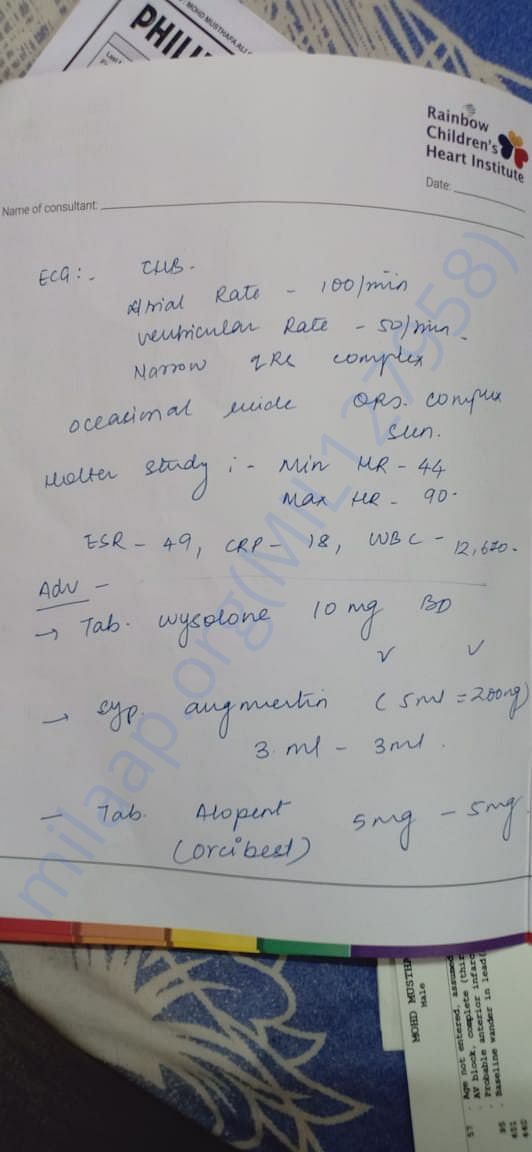 MOHD MUSTHAFA ALI
PHILI
Rainbow
Children's
Heart Institute
Date:
Name of consultant:
ECG:- CHB.
Atrial Rate - 100/min
Ventricular Rate - 50/min.
Narrow QRS complex
occasional wide QRS. complex
seen.
Holter study :- Min HR - 44
Max HR - 90.
ESR - 49, CRP - 18, WBC - 12,670.
Adv -
→ Tab. Wysolone 10 mg BD
→ Syp. augmentin (5ml = 200mg)
3 ml - 3ml.
- Tab. Alopent 5mg - 5mg
(orcibest)
milaap.org(MIL127958)
MOHD MUSTHA
Male
57 · Age not entered, assumed
· AV block, complete (thir
· Probable anterior infarc
95 · Baseline wander in lead(
451
440